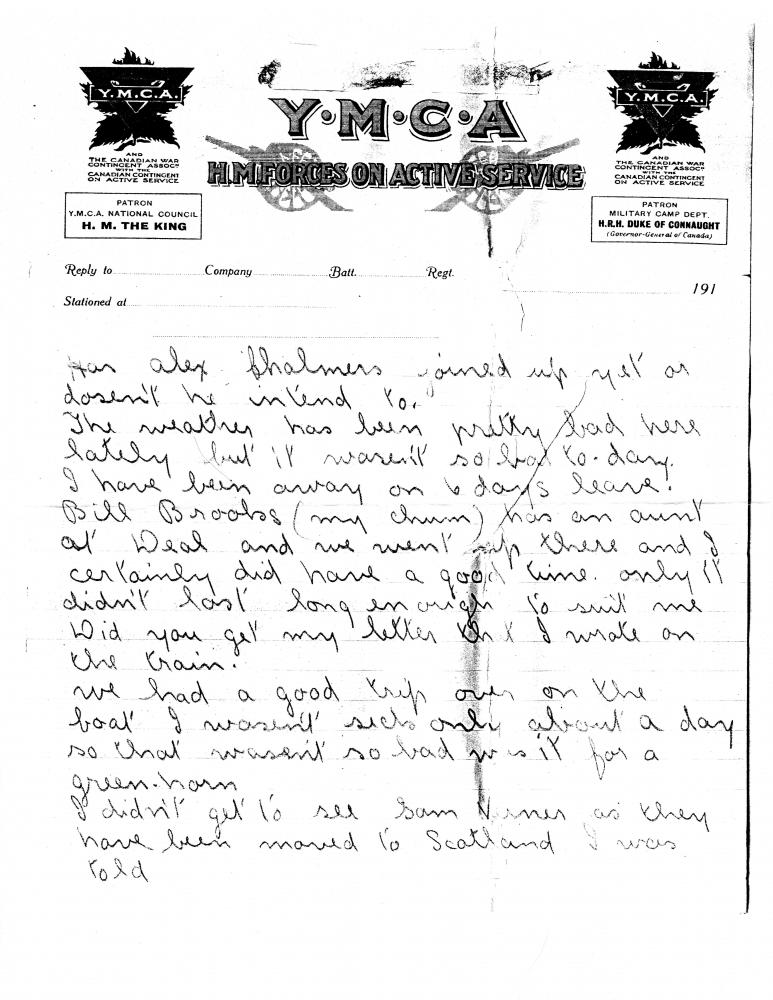 Y.M.C.A.
AND
THE CANADIAN WAR
CONTINGENT ASSOCN
WITH THE
CANADIAN CONTINGENT
ON ACTIVE SERVICE
PATRON
Y.M.C.A. NATIONAL COUNCIL
H. M. THE KING
Y·M·C·A
H.M. FORCES ON ACTIVE SERVICE
Y.M.C.A.
AND
THE CANADIAN WAR
CONTINGENT ASSOCN
WITH THE
CANADIAN CONTINGENT
ON ACTIVE SERVICE
PATRON
MILITARY CAMP DEPT.
H.R.H. DUKE OF CONNAUGHT
(Governor-General of Canada)
Reply to Company Batt. Regt.
191
Stationed at
Has alex Chalmers joined up yet or
dosen't he intend to.
The weather has been pretty bad here
lately but it wasen't so bad to-day.
I have been away on 6 days leave.
Bill Brooks (my chum) has an aunt
at Deal and we went up there and I
certainly did have a good time. only it
didn't last long enough to suit me
Did you get my letter that I wrote on
the train.
we had a good trip over on the
boat I wasen't sick only about a day
so that wasent so bad was it for a
green-horn
I didn't get to see Sam as they
have been moved to Scotland I was
told